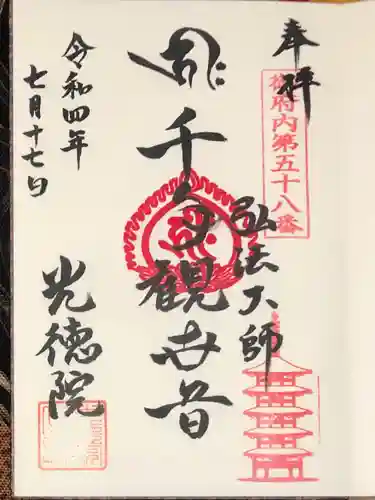 奉拝
御府内第五十八番
弘法大師
千手観世音
光徳院
令和四年
七月十七日